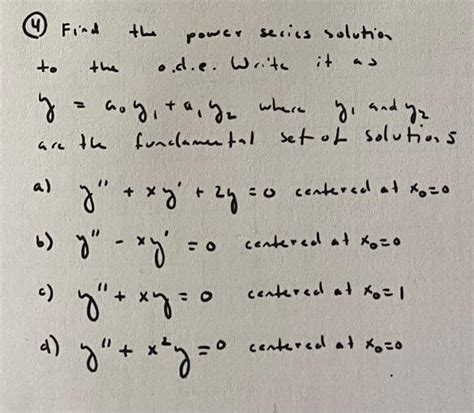 ④ Find the power series solution
to the o.d.e. Write it as
y = a₀y₁ + a₁y₂ where y₁ and y₂
are the fundamental set of solutions
a) y'' + xy' + 2y = 0 centered at x₀=0
b) y'' - xy' = 0 centered at x₀=0
c) y'' + xy = 0 centered at x₀=1
d) y'' + x²y = 0 centered at x₀=0